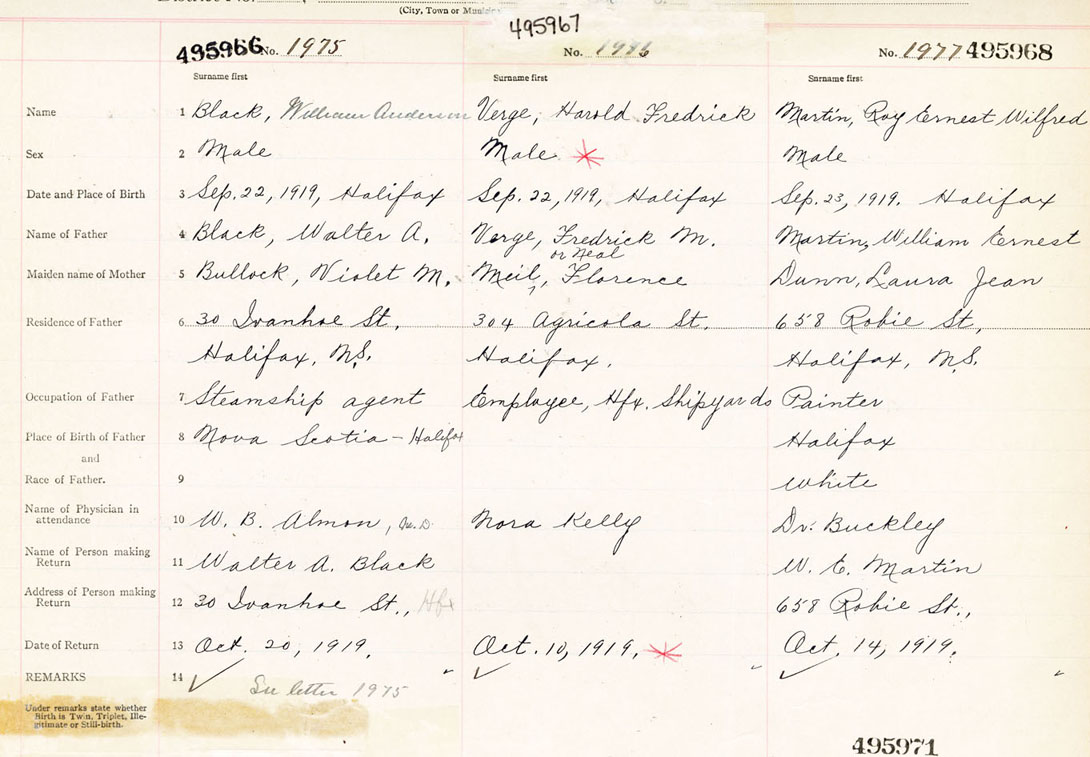 District No.
(City, Town or Munici
495966 No. 1975
495967
No. 1976
No. 1977 495968
Surname first
Surname first
Surname first
Name 1 Black, William Anderson Verge, Harold Fredrick Martin, Roy Ernest Wilfred
Sex 2 Male Male Male
Date and Place of Birth 3 Sep. 22, 1919, Halifax Sep. 22, 1919, Halifax Sep. 23, 1919. Halifax
Name of Father 4 Black, Walter A. Verge, Fredrick M. Martin, William Ernest
or Neal
Maiden name of Mother 5 Bullock, Violet M. Meil, Florence Dunn, Laura Jean
Residence of Father 6 30 Ivanhoe St. 304 Agricola St. 658 Robie St,
Halifax, N.S. Halifax. Halifax, N.S.
Occupation of Father 7 Steamship agent Employee, Hfx. Shipyards Painter
Place of Birth of Father 8 Nova Scotia - Halifax Halifax
and
Race of Father. 9 White
Name of Physician in
attendance 10 W. B. Almon, M.D. Nora Kelly Dr. Buckley
Name of Person making
Return 11 Walter A. Black W. E. Martin
Address of Person making
Return 12 30 Ivanhoe St., Hfx 658 Robie St.,
Date of Return 13 Oct. 20, 1919. Oct. 10, 1919. Oct. 14, 1919.
REMARKS 14
See letter 1975
Under remarks state whether
Birth is Twin, Triplet, Ille-
gitimate or Still-birth.
495971